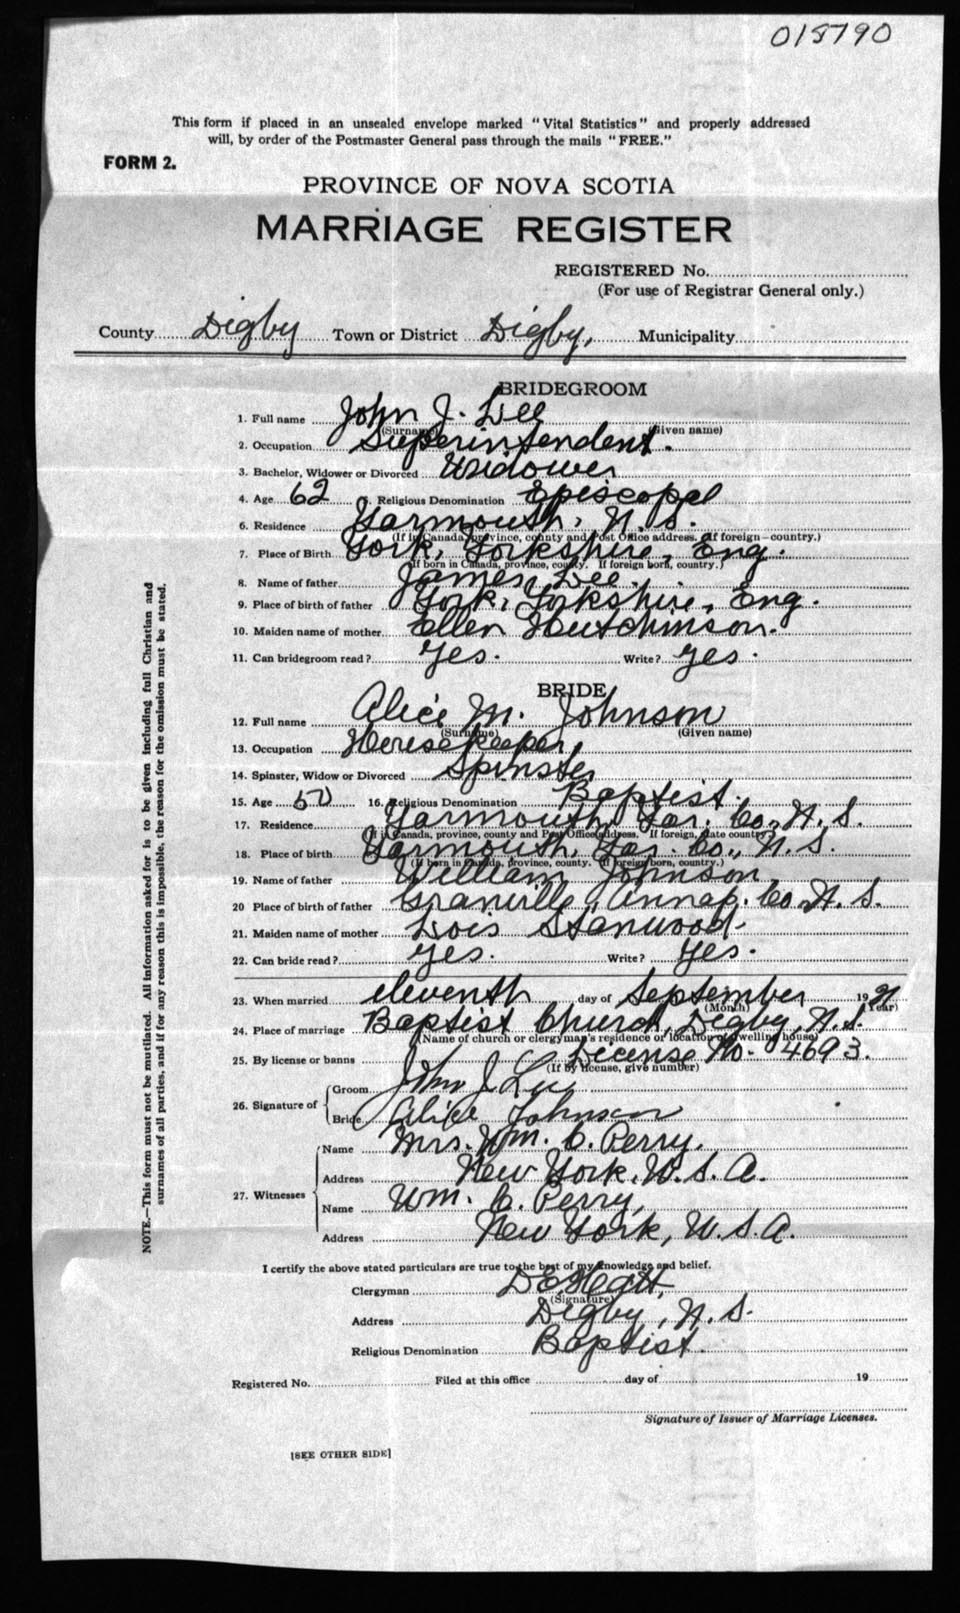 015790
This form if placed in an unsealed envelope marked "Vital Statistics" and properly addressed
will, by order of the Postmaster General pass through the mails "FREE."
FORM 2.
PROVINCE OF NOVA SCOTIA
MARRIAGE REGISTER
REGISTERED No.
(For use of Registrar General only.)
County Digby Town or District Digby, Municipality
BRIDEGROOM
1. Full name John J. Lee
(Surname) (Given name)
2. Occupation Superintendent.
3. Bachelor, Widower or Divorced Widower
4. Age 62 5. Religious Denomination Episcopal
6. Residence Yarmouth, N.S.
(If in Canada, province, county and Post Office address. If foreign—country.)
7. Place of Birth York, Yorkshire, Eng.
(If born in Canada, province, county. If foreign born, country.)
8. Name of father James Lee.
9. Place of birth of father York, Yorkshire, Eng.
10. Maiden name of mother Ellen Hutchinson.
11. Can bridegroom read? Yes. Write? Yes.
BRIDE
12. Full name Alice M. Johnson
(Surname) (Given name)
13. Occupation Housekeeper
14. Spinster, Widow or Divorced Spinster
15. Age 50 16. Religious Denomination Baptist.
17. Residence Yarmouth, Yar. Co., N.S.
(If in Canada, province, county and Post Office address. If foreign, state country)
18. Place of birth Yarmouth, Yar. Co., N.S.
(If born in Canada, province, county. If foreign born, country.)
19. Name of father William Johnson
20 Place of birth of father Granville, Annap. Co. N.S.
21. Maiden name of mother Lois Stanwood.
22. Can bride read? Yes. Write? Yes.
23. When married eleventh day of September 1921
(Month) (Year)
24. Place of marriage Baptist Church, Digby, N.S.
(Name of church or clergyman's residence or location of dwelling house)
25. By license or banns License No. 04693.
(If by license, give number)
26. Signature of Groom John J Lee
Bride Alice Johnson
27. Witnesses Name Mrs. Wm. C. Perry.
Address New York, U.S.A.
Name Wm. C. Perry,
Address New York, U.S.A.
I certify the above stated particulars are true to the best of my knowledge and belief.
Clergyman D E Hatt,
(Signature)
Address Digby, N.S.
Religious Denomination Baptist.
Registered No. Filed at this office day of 19
Signature of Issuer of Marriage Licenses.
[SEE OTHER SIDE]
NOTE.—This form must not be mutilated. All information asked for is to be given including full Christian and
surnames of all parties, and if for any reason this is impossible, the reason for the omission must be stated.